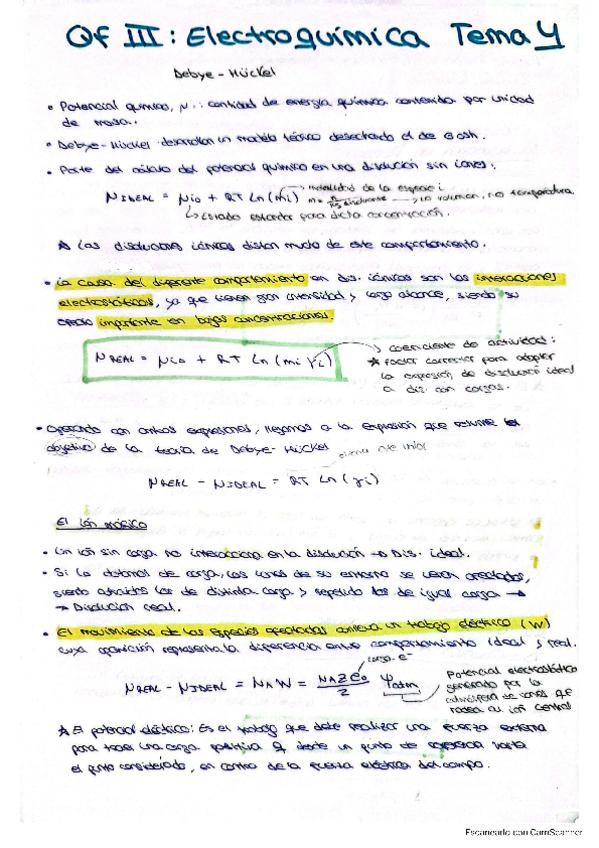 Qf III: Electroquímica Tema 4
Debye-Hückel
• Potencial químico, μ: cantidad de energía química contenida por unidad
de masa.
• Debye-Hückel desarrollan un modelo teórico desechando el de Gosh.
• Parte del cálculo del potencial químico en una disolución sin iones:
molalidad de la especie i
μ IDEAL = μi0 + RT Ln (mi) m = n / Kg disolvente no volumen, no temperatura.
↳ Estado estándar para dicha concentración.
★ Las disoluciones iónicas distan mucho de este comportamiento.
• La causa del diferente comportamiento en dis. iónicas son las interacciones
electrostáticas, ya que tienen gran intensidad y largo alcance, siendo su
efecto importante en bajas concentraciones.
μ REAL = μi0 + RT Ln (mi γi)
coeficiente de actividad:
★ Factor corrector para adaptar
la expresión de disolución ideal
a dis. con cargas.
• Operando con ambas expresiones, llegamos a la expresión que resume el
objetivo de la teoría de Debye-Hückel
μ REAL - μ IDEAL = RT Ln (γi)
El ión mágico
• Un ión sin carga no interacciona en la disolución → Dis. ideal.
• Si lo dotamos de carga, los iones de su entorno se verán afectados,
siendo atraídos los de distinta carga y repelidos los de igual carga →
→ Disolución real.
• El movimiento de las especies afectadas conlleva un trabajo eléctrico (W)
cuya aparición representa la diferencia entre comportamiento ideal y real.
carga e-
μ REAL - μ IDEAL = NA W = NA Z e0 / 2 φatm
Potencial electrostático
generado por la
atmósfera de iones que
rodea al ión central
★ El potencial eléctrico: Es el trabajo que debe realizar una fuerza externa
para traer una carga positiva q desde un punto de referencia hasta
el punto considerado, en contra de la fuerza eléctrica del campo.
Escaneado con CamScanner